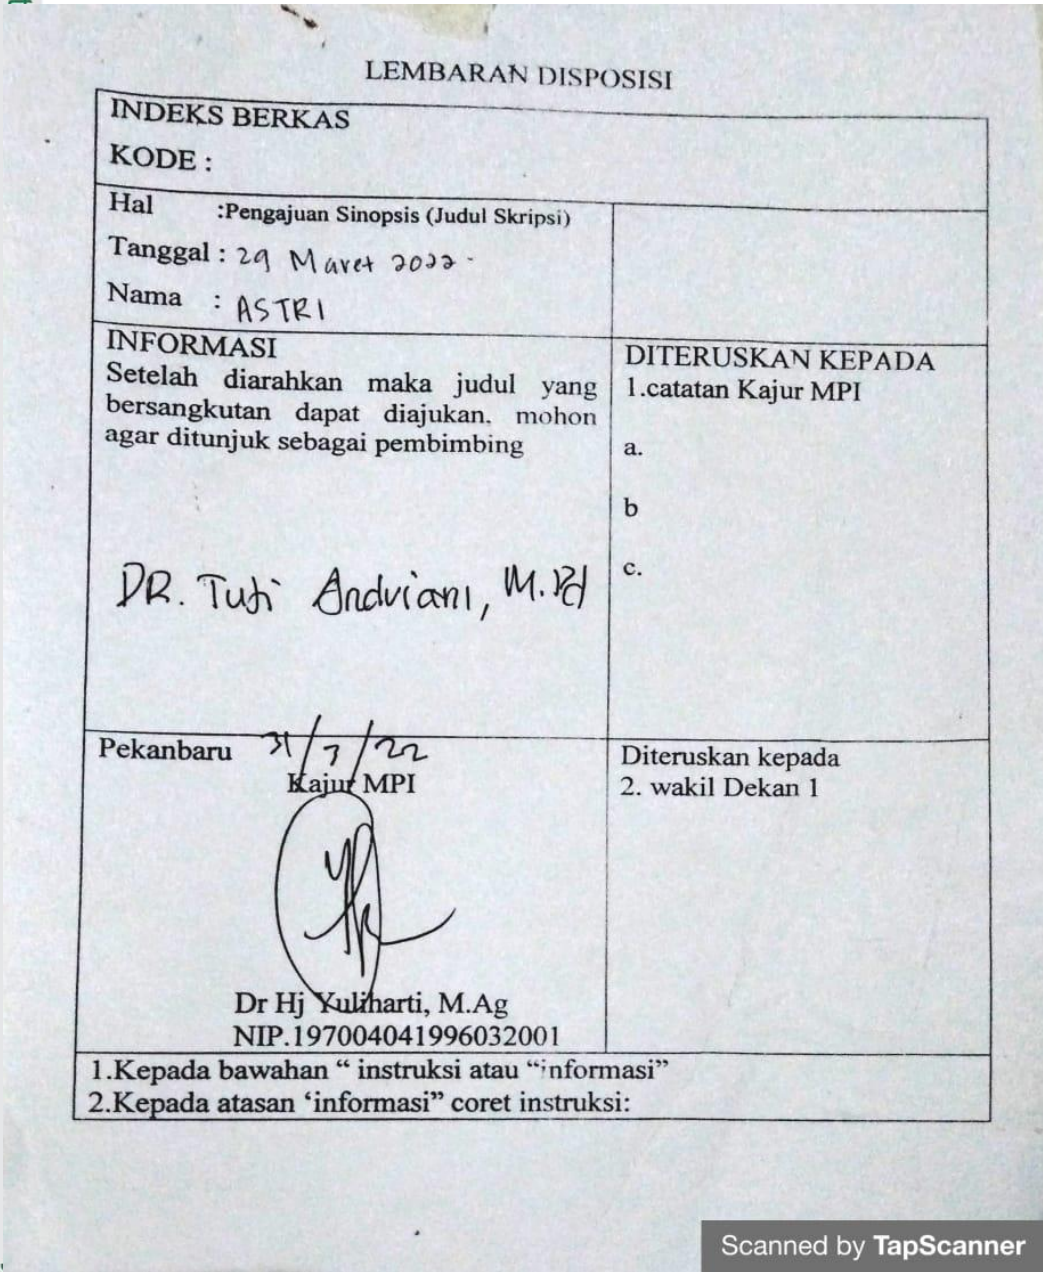 LEMBARAN DISPOSISI
INDEKS BERKAS
KODE :
Hal :Pengajuan Sinopsis (Judul Skripsi)
Tanggal : 29 Maret 2022.
Nama : ASTRI
INFORMASI
Setelah diarahkan maka judul yang
bersangkutan dapat diajukan. mohon
agar ditunjuk sebagai pembimbing
DR. Tuti Andriani, M.Pd
DITERUSKAN KEPADA
1.catatan Kajur MPI
a.
b
c.
Pekanbaru 31/3/22
Kajur MPI
Dr Hj Yuliharti, M.Ag
NIP.197004041996032001
Diteruskan kepada
2. wakil Dekan 1
1.Kepada bawahan “ instruksi atau “informasi”
2.Kepada atasan ‘informasi” coret instruksi:
Scanned by TapScanner